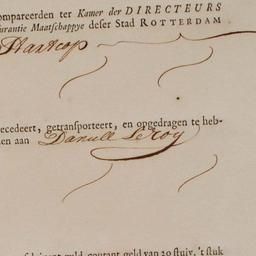 ompareerden ter Kamer der DIRECTEURS
urantie Maatschappye deser Stad ROTTERDAM
Hartcop
ecedeert, getransporteert, en opgedragen te heb-
en aan Daniel Le Roy
guld. courant geld van 20 stuiv. 't stuk